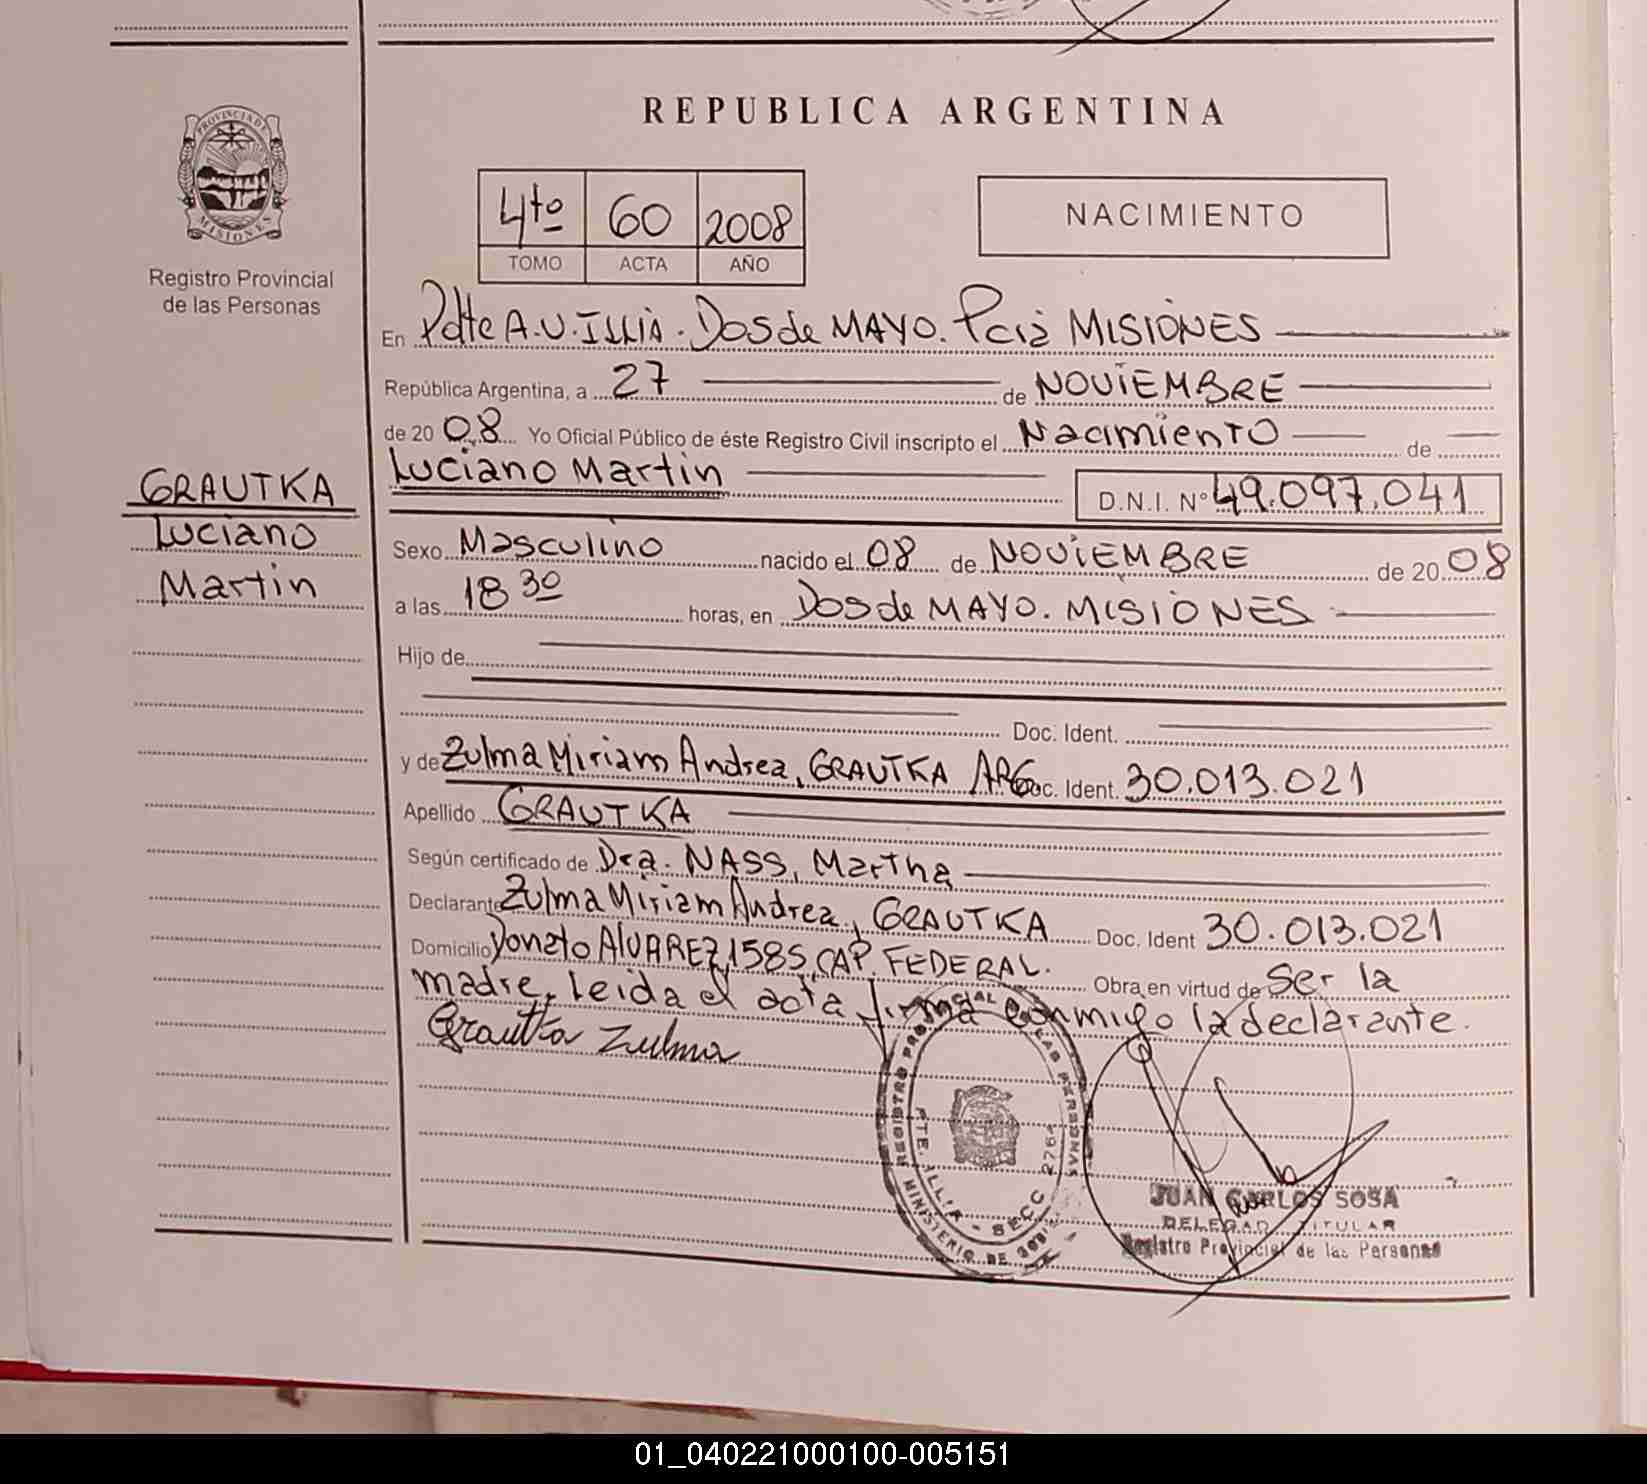 PROVINCIA DE
MISIONES
Registro Provincial
de las Personas
GRAUTKA
Luciano
Martin
REPUBLICA ARGENTINA
4to 60 2008
TOMO ACTA AÑO
NACIMIENTO
En Pdte A.U. ILLIA. Dos de MAYO. Pcia MISIONES
República Argentina, a 27 de NOVIEMBRE
de 20 08 Yo Oficial Público de éste Registro Civil inscripto el Nacimiento de
Luciano Martin D.N.I. Nº 49.097.041
Sexo Masculino nacido el 08 de NOVIEMBRE de 20 08
a las 18 30 horas, en Dos de MAYO. MISIONES
Hijo de
Doc. Ident.
y de Zulma Miriam Andrea, GRAUTKA ARG Doc. Ident. 30.013.021
Apellido GRAUTKA
Según certificado de Dra. NASS, Martha
Declarante Zulma Miriam Andrea, GRAUTKA Doc. Ident 30.013.021
Domicilio Donato ALVAREZ 1585, CAP. FEDERAL. Obra en virtud de Ser la
madre, leida el acta firma conmigo la declarante.
Grautka Zulma
REGISTRO PROVINCIAL DE LAS PERSONAS
PTE. ILLIA - SECC 2764
MINISTERIO DE GOB
JUAN CARLOS SOSA
DELEGADO TITULAR
Registro Provincial de las Personas
01_040221000100-005151